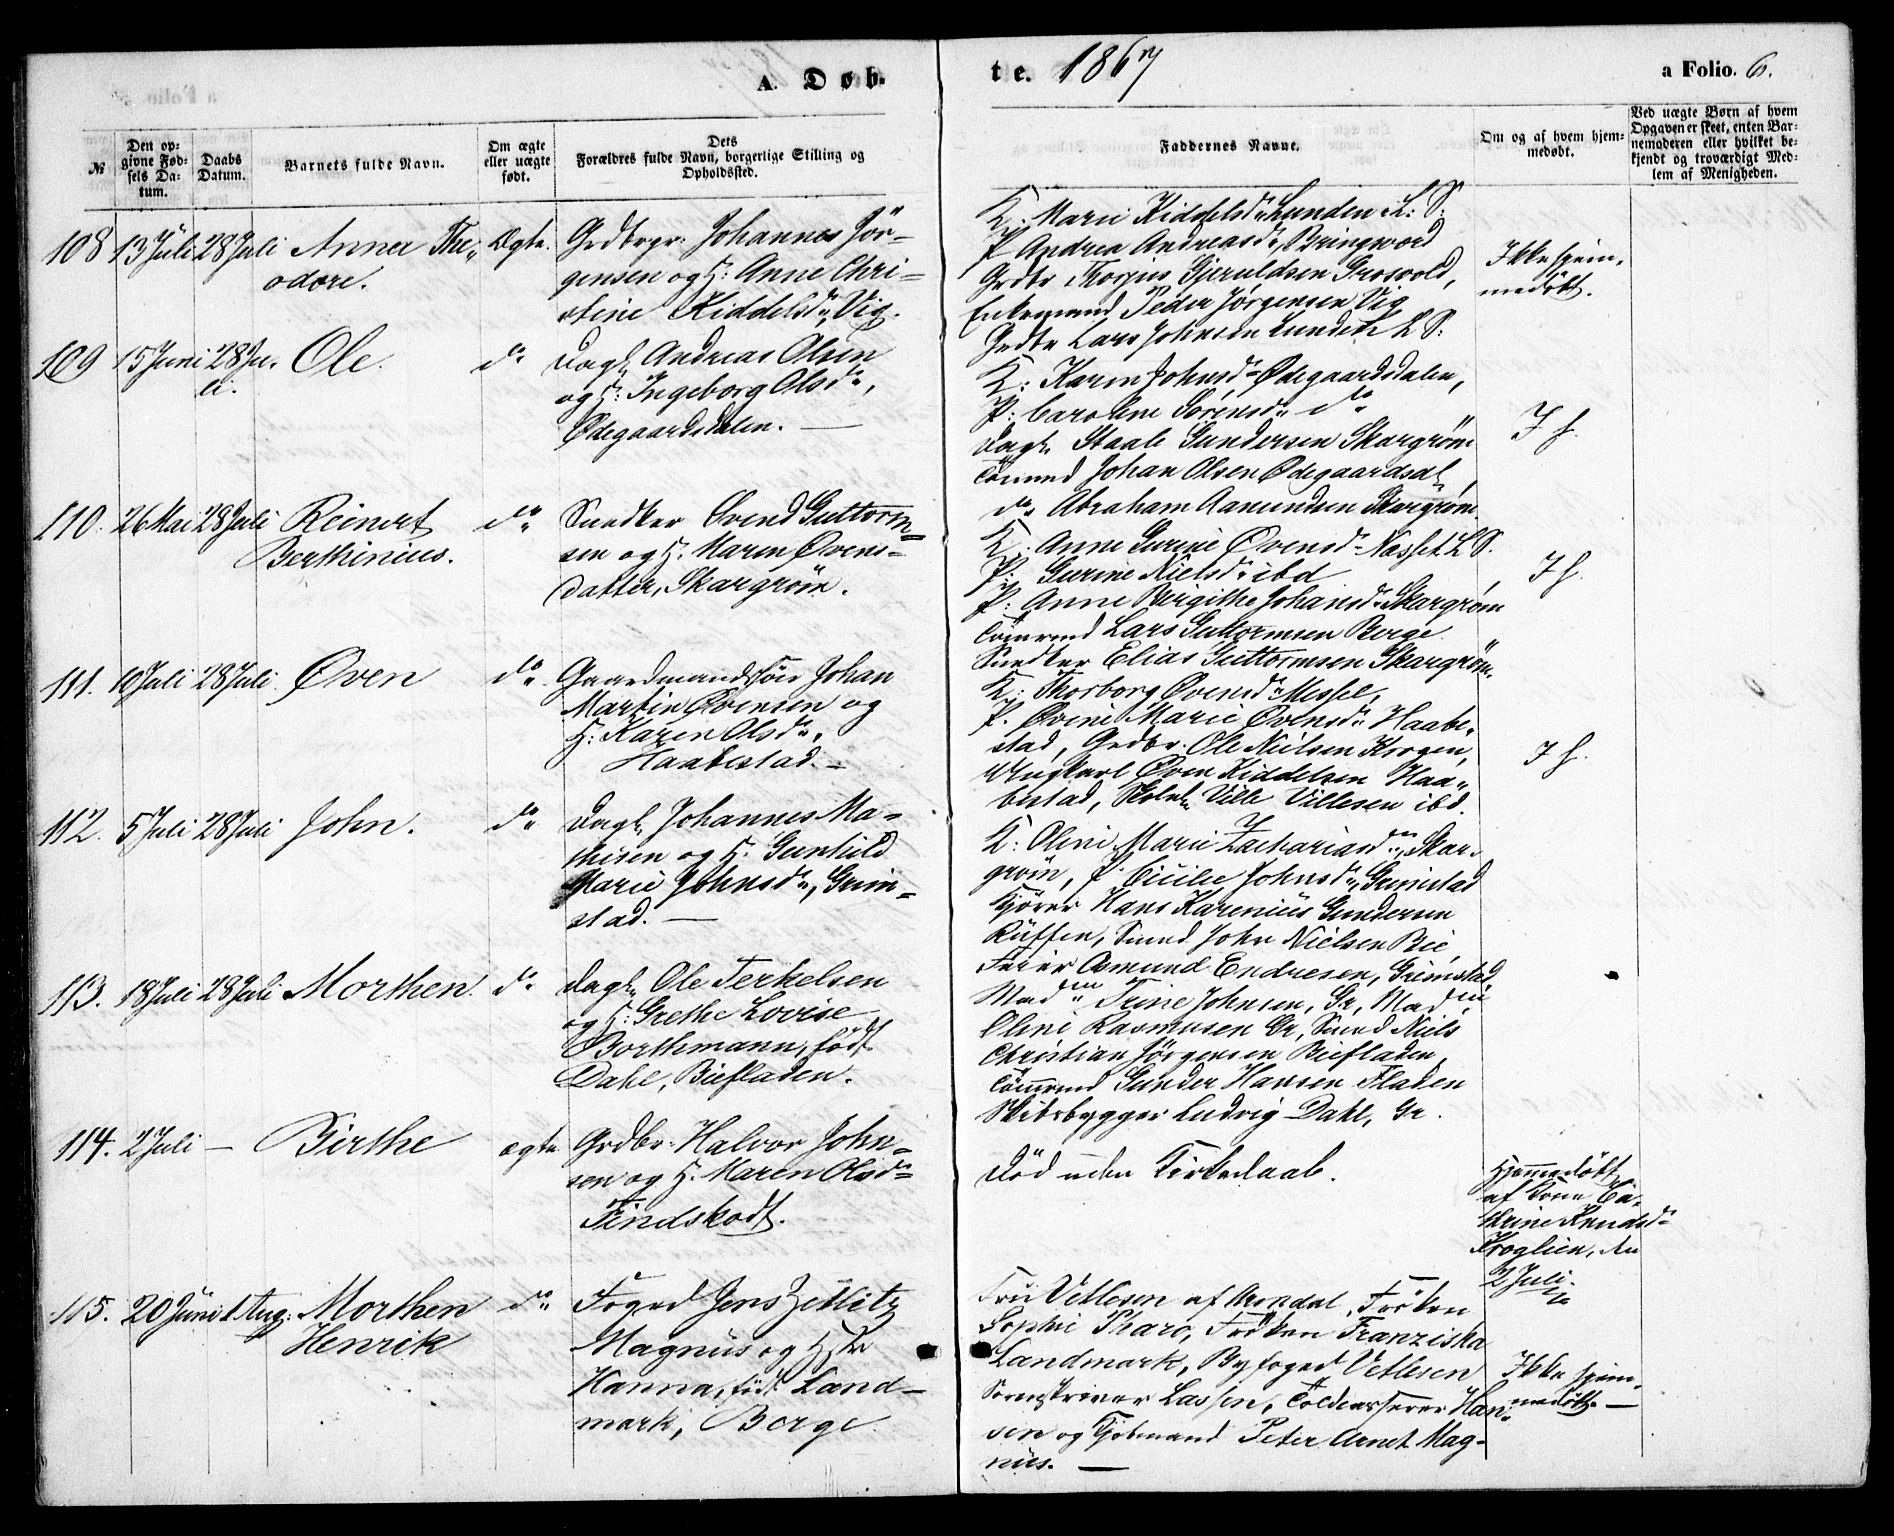 A. Døb-
te. 1867
a Folio. 6.
№
Den op-
givne Fød-
sels Da-
tum.
Daabs
Datum.
Barnets fulde Navn.
Om ægte
eller uægte
født.
Dets
Forældres fulde Navn, borgerlige Stilling og
Opholdssted.
Faddernes Navne.
Om og af hvem hjem-
medøbt.
Ved uægte Børn af hvem
Opgaven er skeet, enten Bar-
nemoderen eller hvilket be-
kjendt og troværdigt Med-
lem af Menigheden.
108 13 Juli 28 Juli Anna The-
odore.
Ægte.
Grdbrgr. Johannes Jör-
gensen og H: Anne Chri-
stine Kiddelsd. Vig.
K. Marie Kiddelsd. Lunden L. S.
P. Andrea Andreasd. Bringsvord
Grdbr Thorjus Gjeruldsen Grosvold,
Enkemand Peder Jørgensen Vig
Grdbr Lars Johnsen Lunden L S:
Ikke hjem-
medøbt.
109 15 Juni 28 Ju-
li.
Ole.
do
Dagl. Andreas Olsen
og H: Ingeborg Olsd.,
Ødegaardsdalen. —
K: Karen Johnsd. Ødegaardsdalen,
P: Caroline Sörensd. do
Dagl. Staale Gundersen Skargröm
Tömmd Johan Olsen Ødegaardsdal,
do Abraham Aamundsen Skargrøm.
I h.
110. 26 Mai 28 Juli Reinert
Berthinius.
do
Snedker Øvend Guttorm-
sen og H. Maren Øvens-
datter, Skargröm.
K. Anne Gurine Øvensd. Nasset L S.
P: Gurine Nielsd. ibd
P: Anne Birgithe Johansd. Skargröm
Tömrmd Lars Guttormsen Berge
Snedker Elias Guttormsen Skargröm.
I h.
111. 10 Juli 28 Juli Øven
do
Gaardmandsföd. Johan
Martin Øvensen og
H: Karen Olsd.,
Haabestad. —
K: Thorborg Øvensd. Messel,
P. Øvine Marie Øvensd. Haabe-
stad, Grdbr. Ole Nielsen Krogen,
Ungkarl Øven Kiddelsen Haa-
bestad, Skolel. Ville Villesen ibd.
I h.
112. 5 Juli 28 Juli John.
do
Dagl. Johannes Ma-
thisen og H. Gunhild
Marie Johnsd., Grim-
stad. —
K: Oline Marie Zachariasd., Skar-
gröm, P. Cicilie Johnsd., Grimstad
Kjörer Hans Karenius Gundersen
Smed John Nielsen Bie,
Feier Asmund Endresen, Grimstad
113. 18 Juli 28 Juli Morthen.
do
Dagl. Ole Terkelsen
og H: Grethe Lovise
Borthmann, født
Dahl, Biefladen.
Madm Trine Johnsen, Gr, Madm
Oline Rasmusen Gr, Smed Niels
Christian Jörgensen Biefladen,
Tömrmd Gunder Hansen Fladen
Skibsbygger Ludvig Dahl, Gr.
114. 2 Juli — Birthe
ægte.
Grdbr. Halvor John-
sen og H. Maren Olsd.
Findskodt.
Död uden Kirkedaab.
Hjemmedöbt
af Kone Ca-
thrine Knudsd.
Kroglien, den
2 Juli.
115. 20 Juni 1 Aug: Morthen
Henrik
do
Foged Jens Zetlitz
Magnus og Hstr
Hanna, født Land-
mark, Berge.
Fru Vetlesen af Arendal, Fröken
Sophie Pharo, Fröken Franziska
Landmark, Byfoged Vetlesen
Sorenskriver Lassen, Toldcasserer Han-
sen og Kjöbmand Peter Arnet Mag-
nus. —
Ikke hjem-
medøbt. —